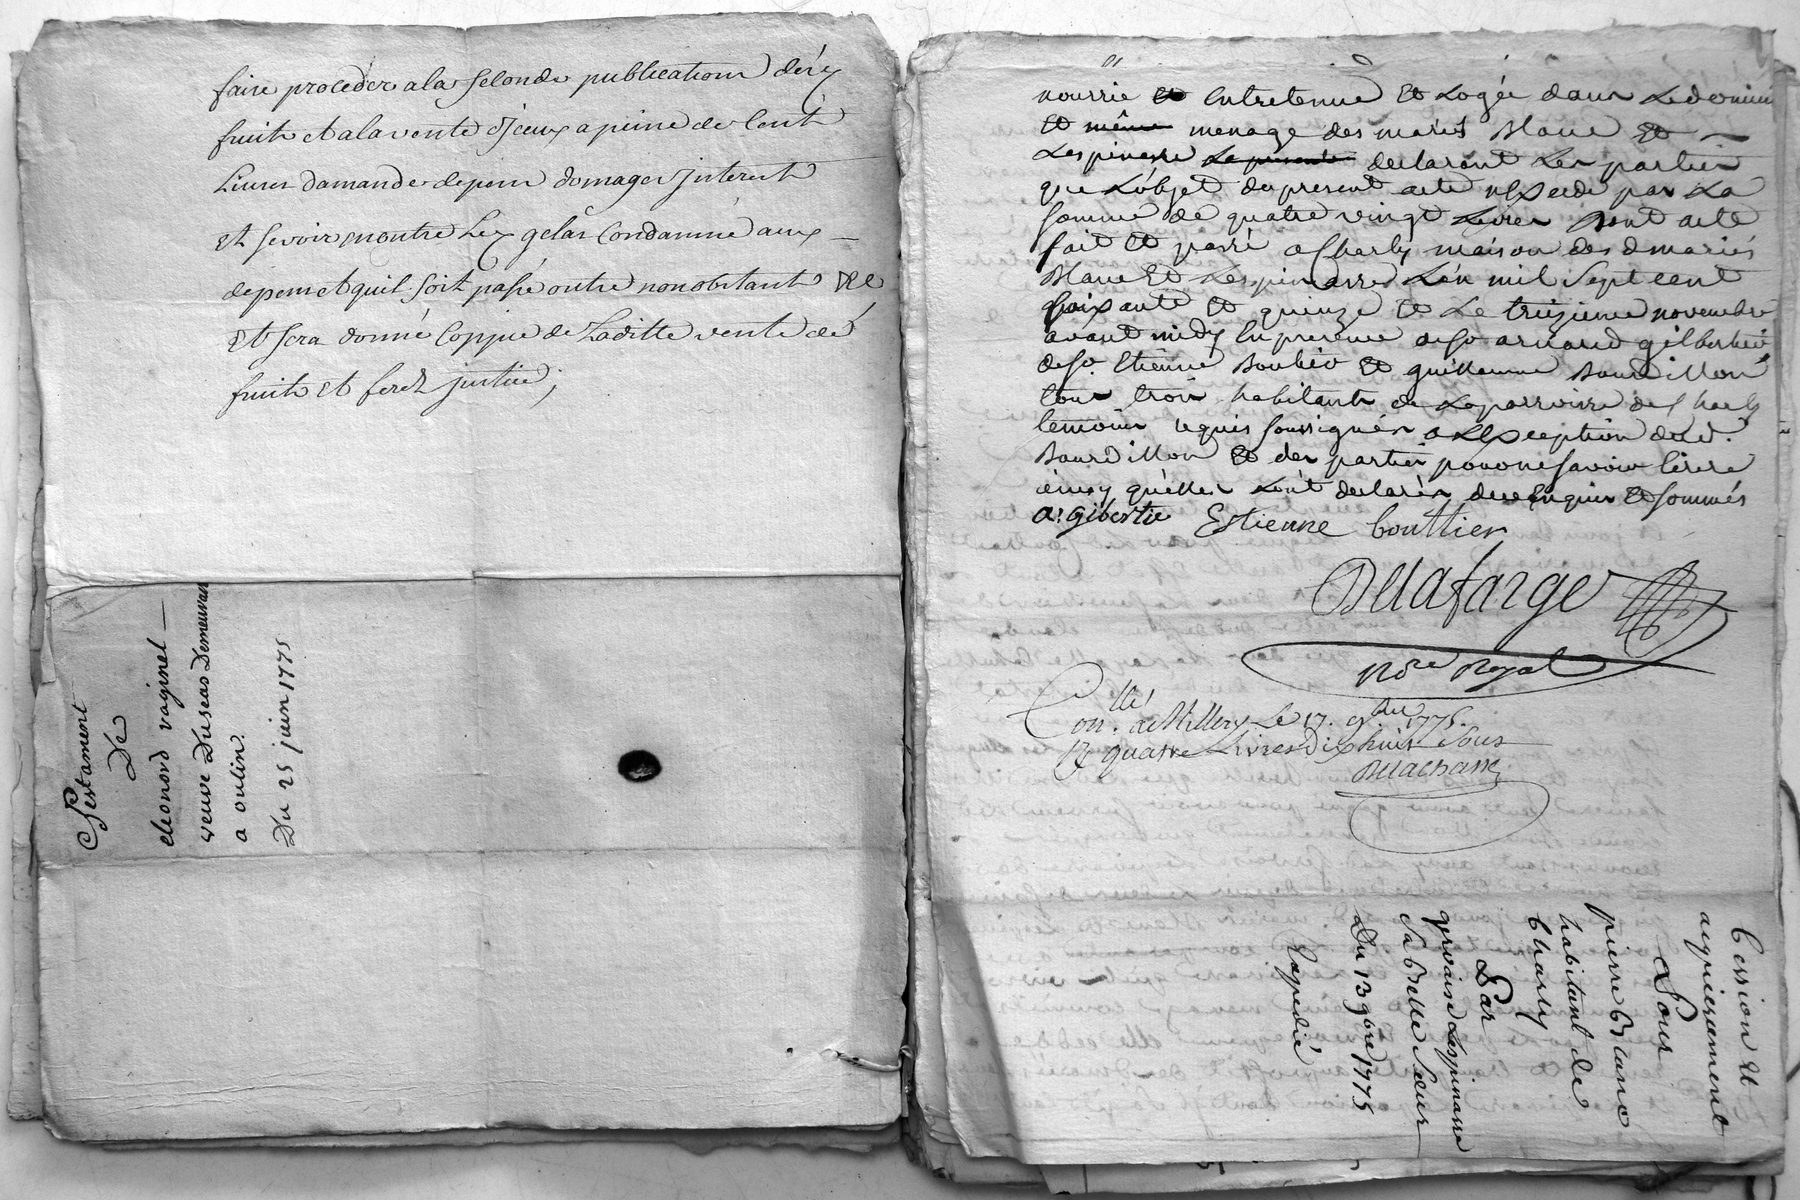 faire proceder a la seconde publication des
fruits et a la vente d'jceux a peine de cent
Livres damande depens domages jnterests
Et se voir contre Les condamné aux
depens et quil soit passé outre nonobstant
Et sera donné Coppie de Laditte vente de
fruits Et ferez justice;
Testament
De
eleonord vaginel
veuve Duseas Demeurant
a oulin.
Du 25 juin 1775
nourrie Et Entretenue Et Logée dans Le
Et même menage des mariés Blanc Et
Lespinasse declarant Les parties
que L'objet du present acte n'Excede pas La
somme de quatre vingt Livres Dont acte
fait Et passé a Charly maison des d mariés
Blanc Et Lespinasse L'an mil Sept cent
soixante Et quinze Et Le treizieme novembre
avant midy En presence de Sr arnaud gilbertié
de Sr. Etienne Boutier Et guillaume Bourdillon
tous trois habitants de La parroisse de Charly
temoins requis soussignés a L'Exception dud.
Bourdillon Et des parties pour ne savoir Ecrire
ainsy qu'elles L'ont declarés de ce Enquis Et sommés
A: gibertie Estienne bouttier
Delafarge
Nore Royal
Con.llé a Millery Le 17. 9bre 1775.
R quatre Livres Dix huit Sous
Delachasse
Cession Et
acquiessement
Pour
pierre Blanc
habitant de
Charly
Par
gervaise Lespinasse
sa Belle Sœur
Du 13 9bre 1775
Expedié